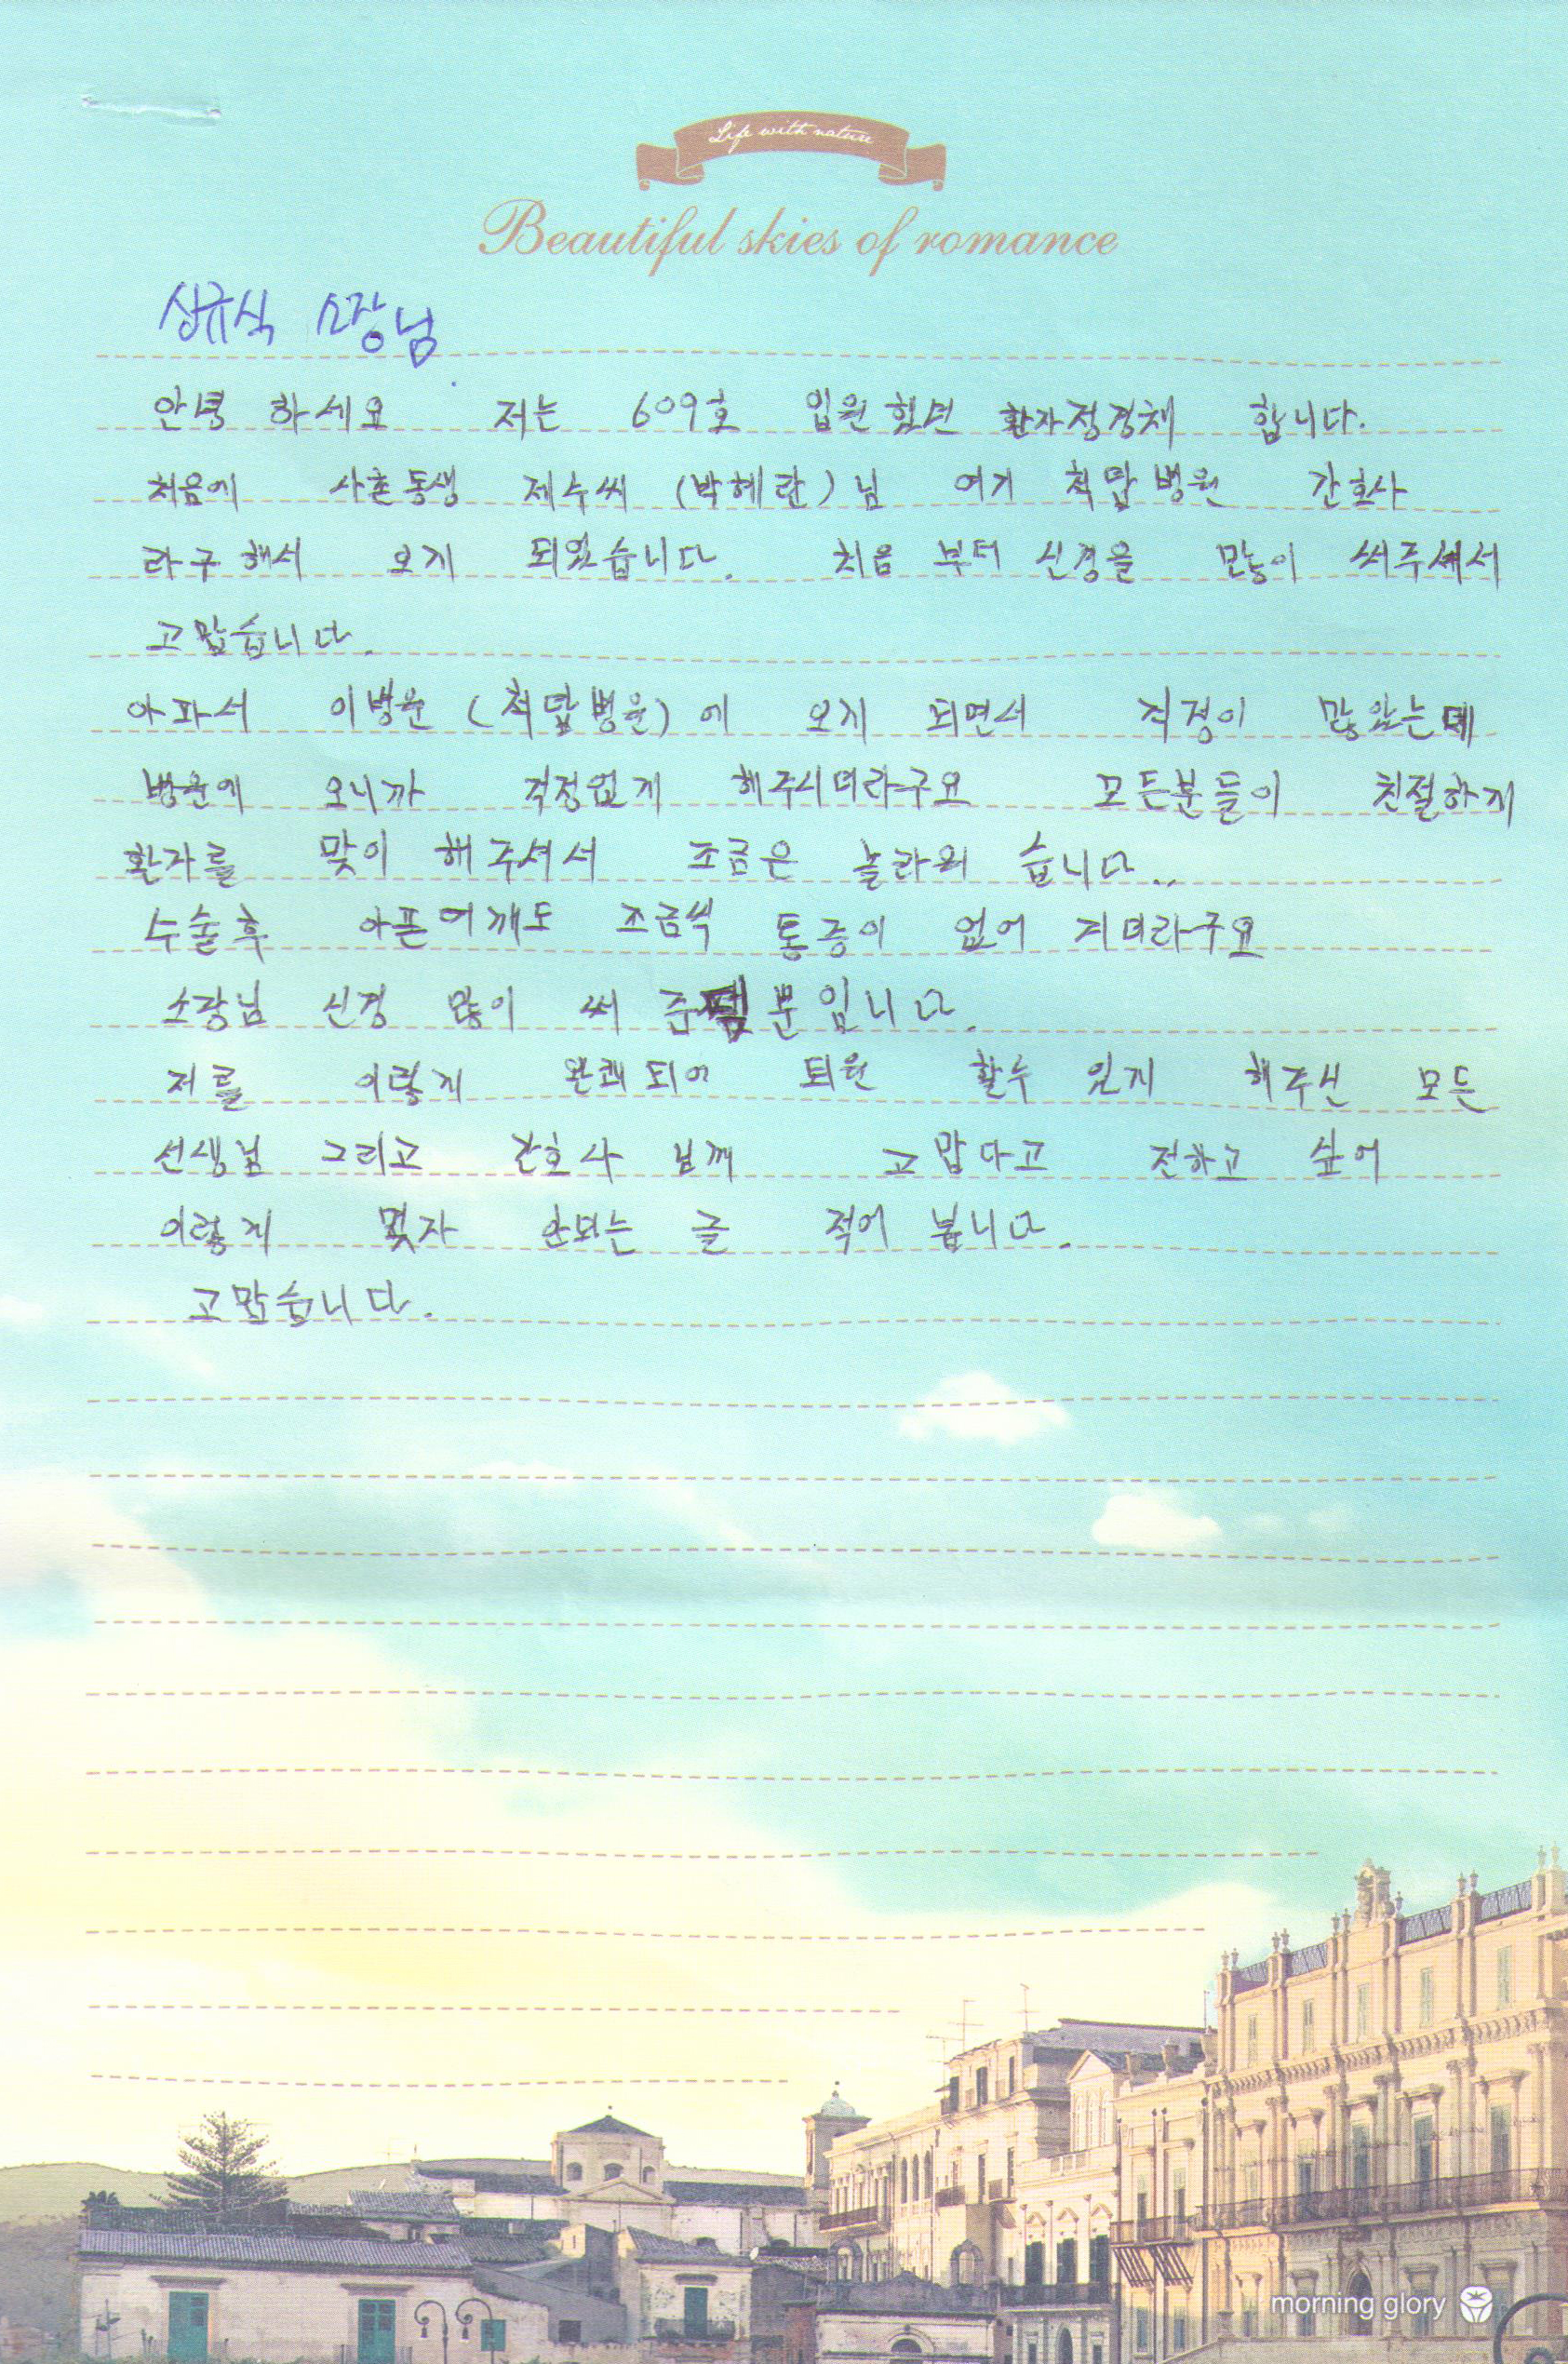 Life with nature
Beautiful skies of romance
심규식 소장님
안녕 하세요 저는 609호 입원 했던 환자정경채 합니다.
처음에 사촌동생 제수씨 (박혜란)님 여기 척맙병원 간호사
라구해서 오게 되었습니다. 처음 부터 신경을 많이 써주셔서
고맙습니다.
아파서 이병원 (척맙병원)에 오게 되면서 걱정이 많았는데
병원에 오니까 걱정없게 해주시더라구요 모든분들이 친절하게
환자를 맞이 해주셔서 조금은 놀라워 습니다..
수술후 아픈어깨도 조금씩 통증이 없어 지더라구요
소장님 신경 많이 써 준 뿐입니다.
저를 이렇게 완쾌되어 퇴원 할수 있게 해주신 모든
선생님 그리고 간호사 님께 고맙다고 전하고 싶어
이렇게 몇자 안되는 글 적어 봅니다.
고맙습니다.
morning glory